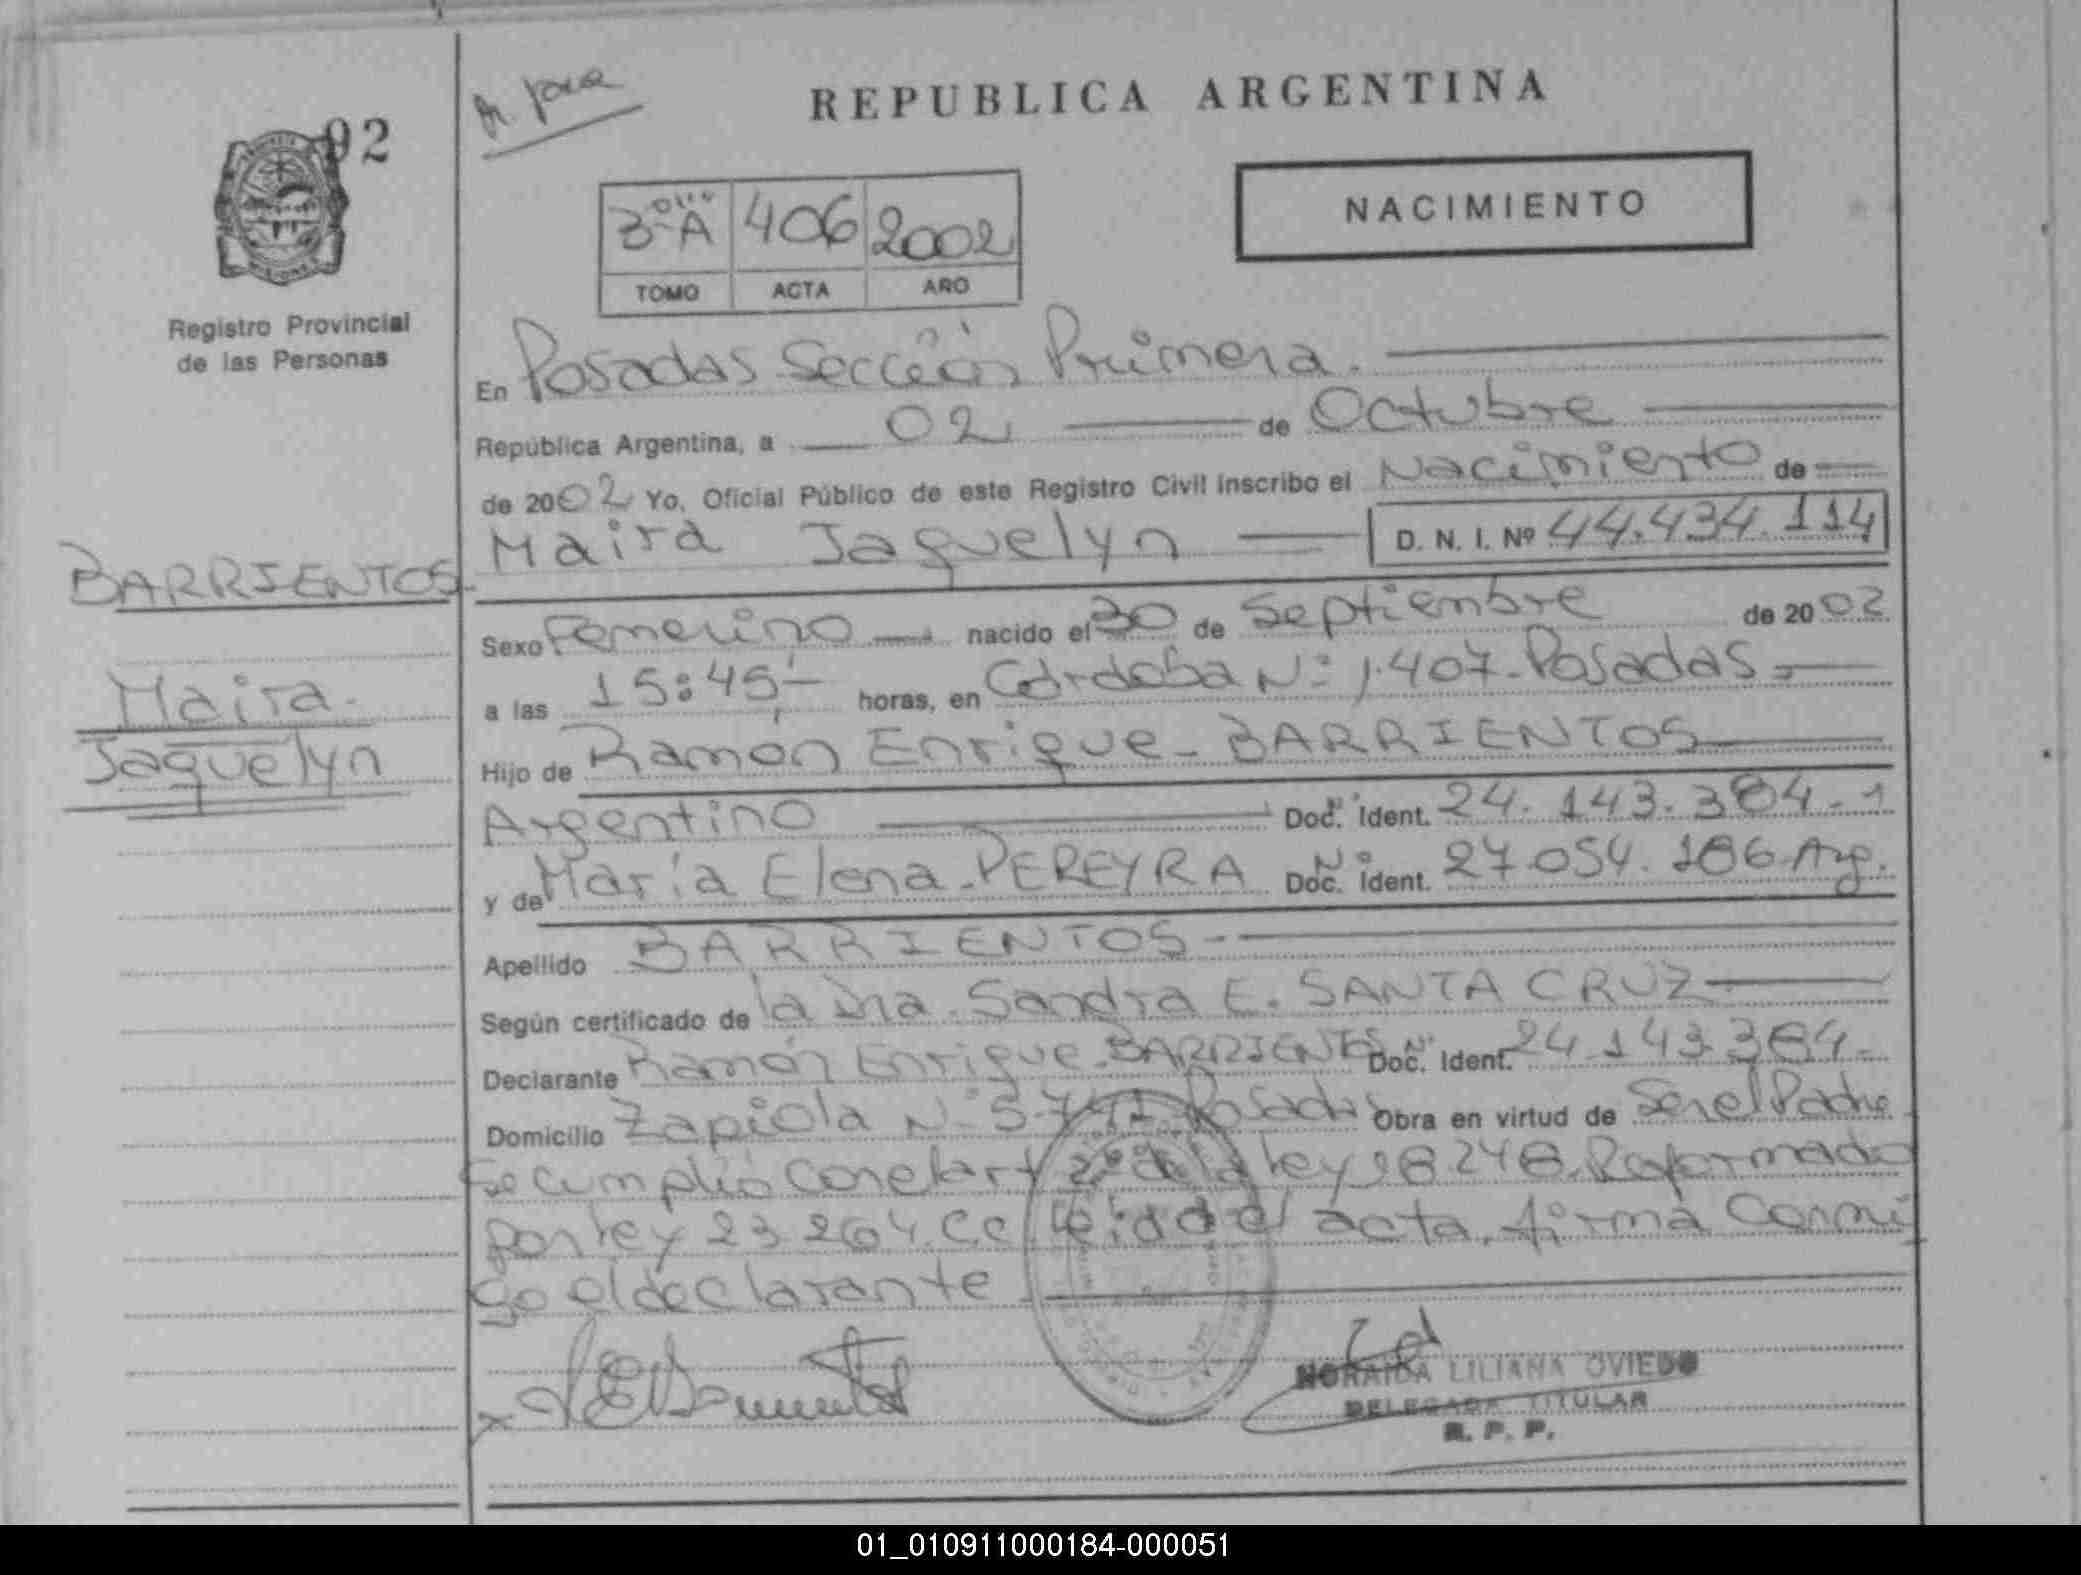 A foxa
REPUBLICA ARGENTINA
92
NACIMIENTO
3º A 406 2002
TOMO ACTA AÑO
Registro Provincial
de las Personas
En Posadas Sección Primera.
República Argentina, a 02 de Octubre
de 2002 Yo, Oficial Público de este Registro Civil inscribo el Nacimiento de
Maira Jaquelyn D. N. I. Nº 44.434.114
BARRIENTOS
Sexo Femenino nacido el 30 de Septiembre de 2002
Maira
a las 15:45 horas, en Córdoba Nº 1.407-Posadas
Jaquelyn
Hijo de Ramón Enrique-BARRIENTOS
Argentino Doc. Nº Ident. 24.143.384-1
y de María Elena-PEREYRA Doc. Nº Ident. 27.054.186-Arg.
Apellido BARRIENTOS
Según certificado de la Dra. Sandra E. SANTA CRUZ
Declarante Ramón Enrique-BARRIENTOS Doc. Nº Ident. 24.143.384-
Domicilio Zapiola Nº Posadas Obra en virtud de Ser el Padre
Se cumplió con el art 2º de la ley 18.248. Reformado
por ley 23.264. C.C. leída el acta, firma conmi
go el declarante
NORAIDA LILIANA OVIEDO
DELEGADA TITULAR
R. P. P.
01_010911000184-000051